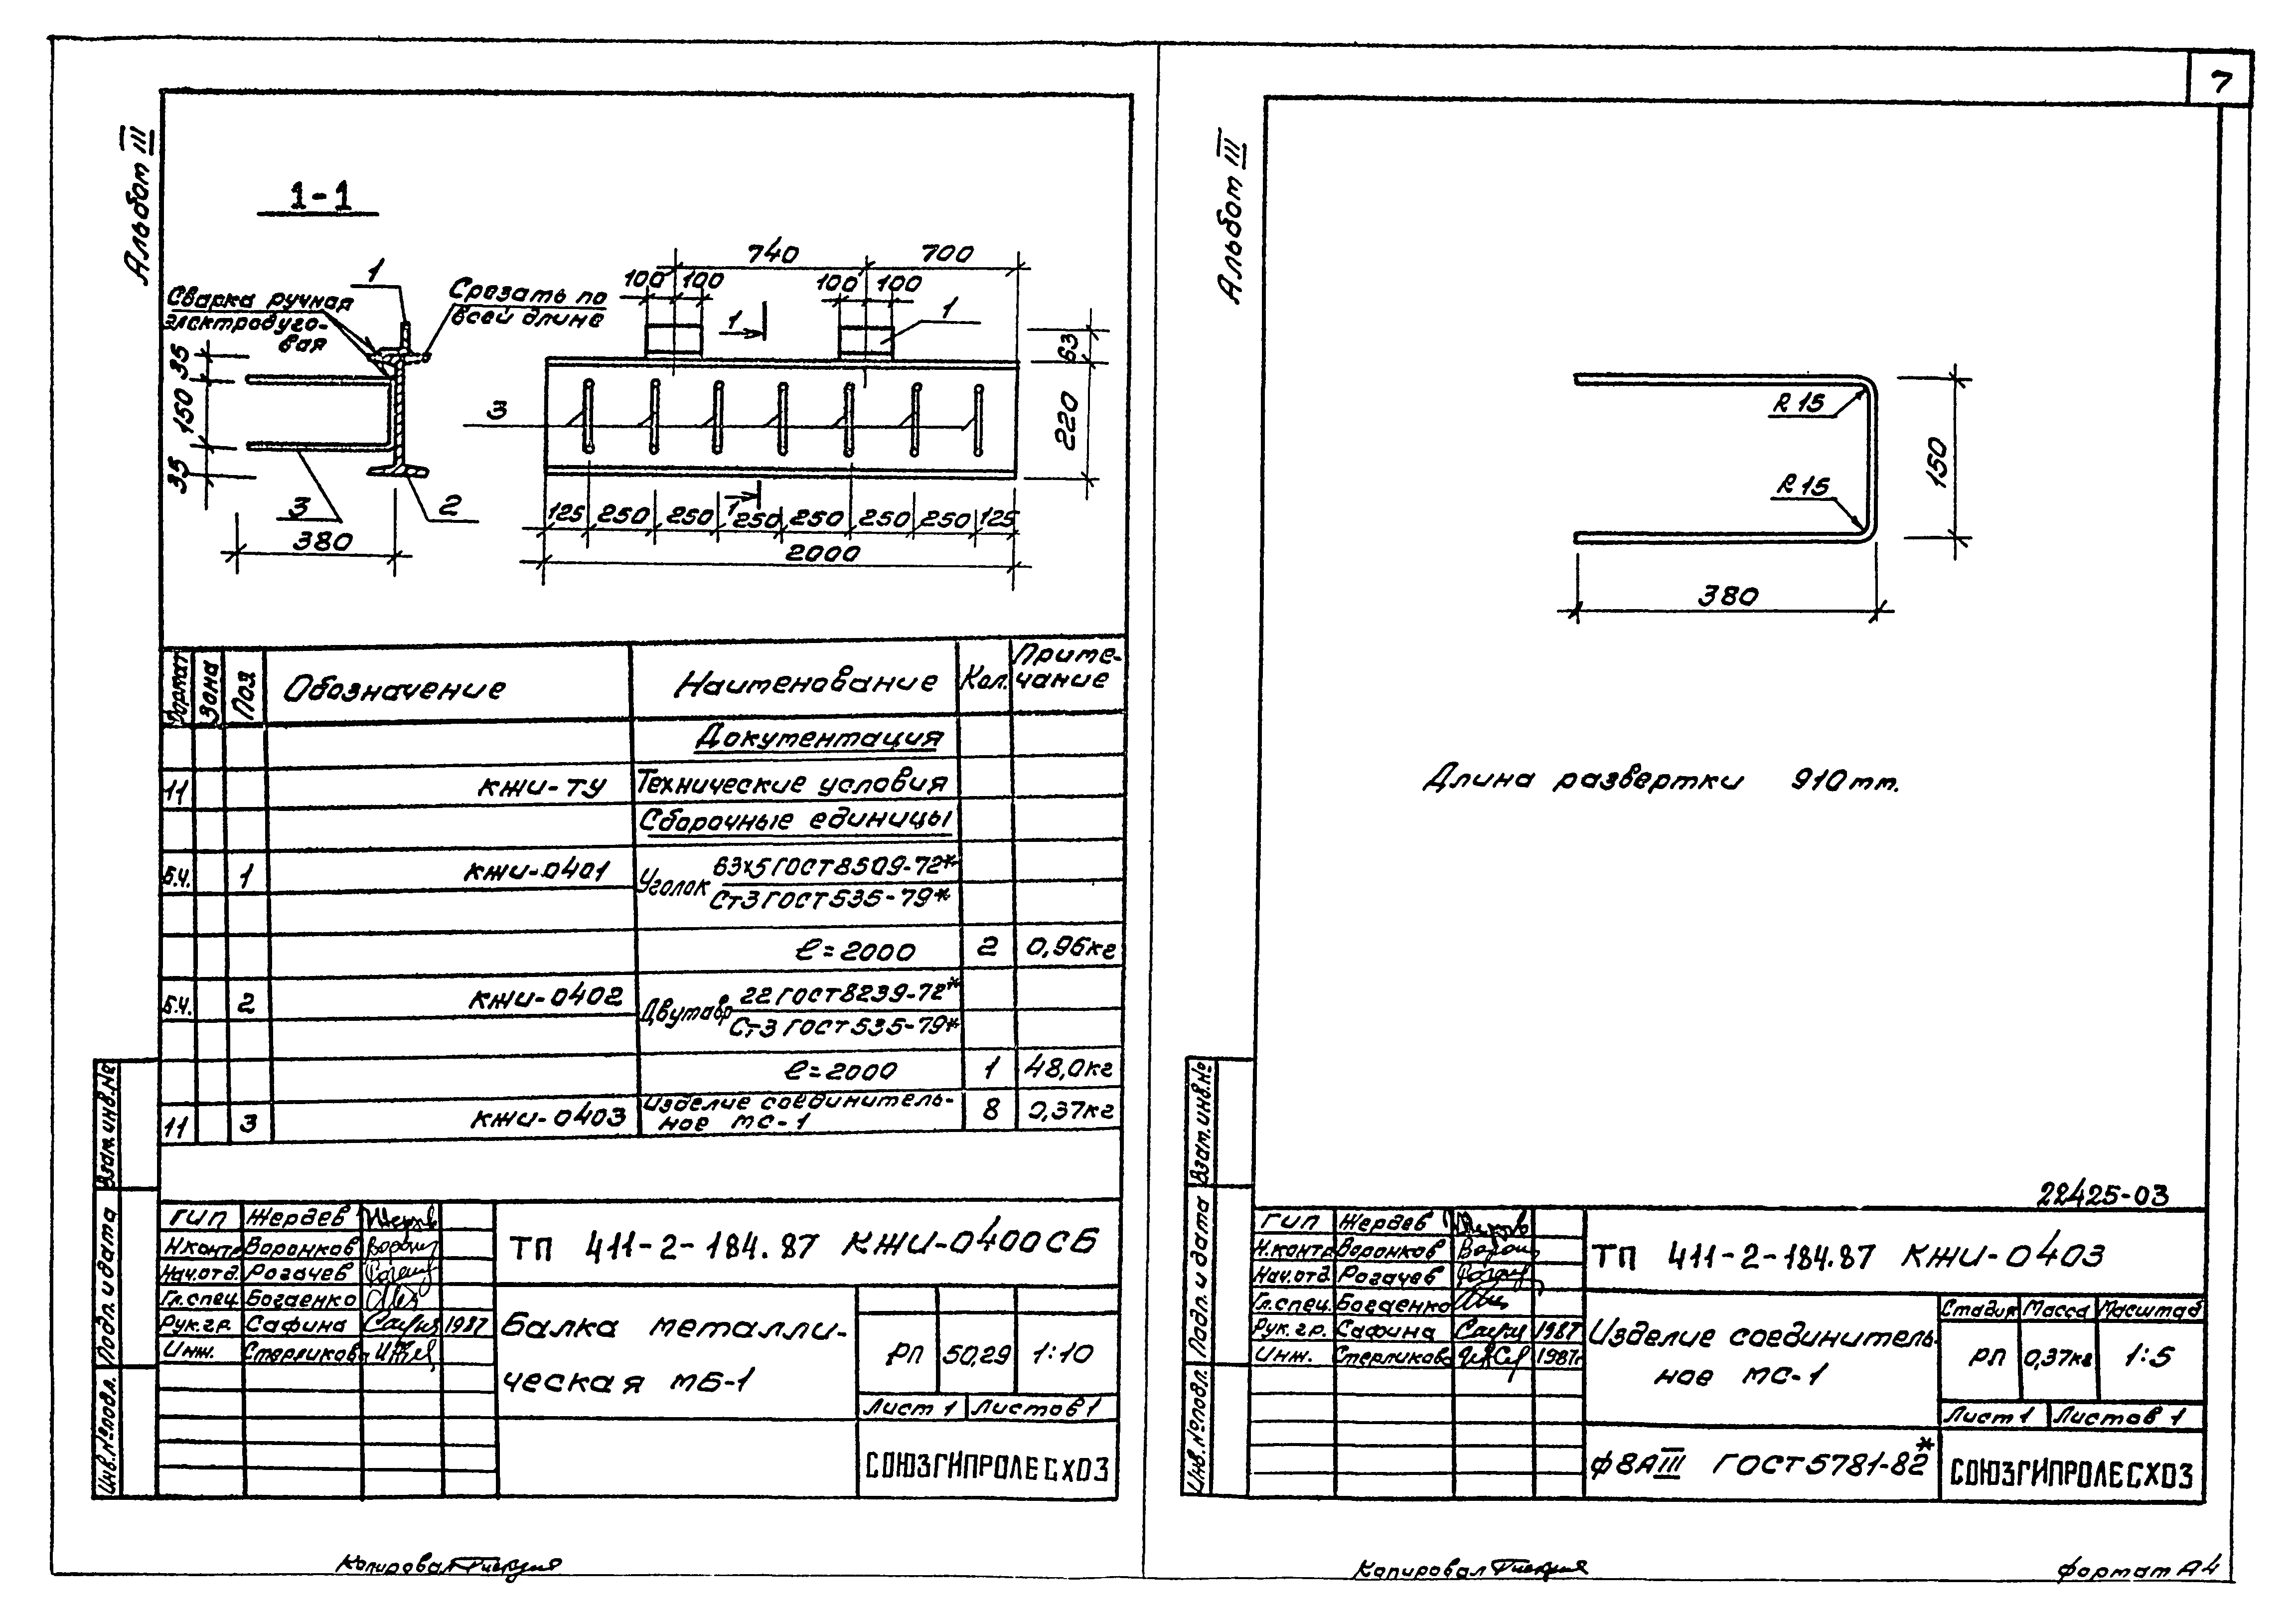 7
Альбом III
1-1
1
Сварка ручная
электродуго-
вая
Срезать по
всей длине
35
150
35
3
2
380
740
700
100 100
100 100
1
1
63
220
3
1
125 250 250 250 250 250 250 125
2000
Формат Зона Поз Обозначение Наименование Кол. Приме-
чание
Документация
11 КЖИ-ТУ Технические условия
Сборочные единицы
Б.ч. 1 КЖИ-0401 Уголок 63х5 ГОСТ 8509-72*
Ст3 ГОСТ 535-79*
ℓ=2000 2 0,96кг
Б.ч. 2 КЖИ-0402 Двутавр 22 ГОСТ 8239-72*
Ст3 ГОСТ 535-79*
ℓ=2000 1 48,0кг
11 3 КЖИ-0403 Изделие соединитель-
ное МС-1 8 0,37кг
Взам.инв.№
Подп. и дата
Инв.№подл.
ГИП Жердев
Н.контр Воронков
Нач.отд. Рогачев
Гл.спец. Богаенко
Рук.гр. Сафина 1987
Инж. Стерликова
ТП 411-2-184.87 КЖИ-0400СБ
Балка металли-
ческая МБ-1
РП 50,29 1:10
Лист 1 Листов 1
СОЮЗГИПРОЛЕСХОЗ
Копировал
Альбом III
R 15
R 15
150
380
Длина развертки 910мм.
22425-03
Взам.инв.№
Подп. и дата
Инв.№подл.
ГИП Жердев
Н.контр Воронков
Нач.отд. Рогачев
Гл.спец. Богаенко
Рук.гр. Сафина 1987
Инж. Стерликова 1987г
ТП 411-2-184.87 КЖИ-0403
Изделие соединитель-
ное МС-1
Стадия Масса Масштаб
РП 0,37кг 1:5
Лист 1 Листов 1
ф8АIII ГОСТ 5781-82*
СОЮЗГИПРОЛЕСХОЗ
Копировал
Формат А4